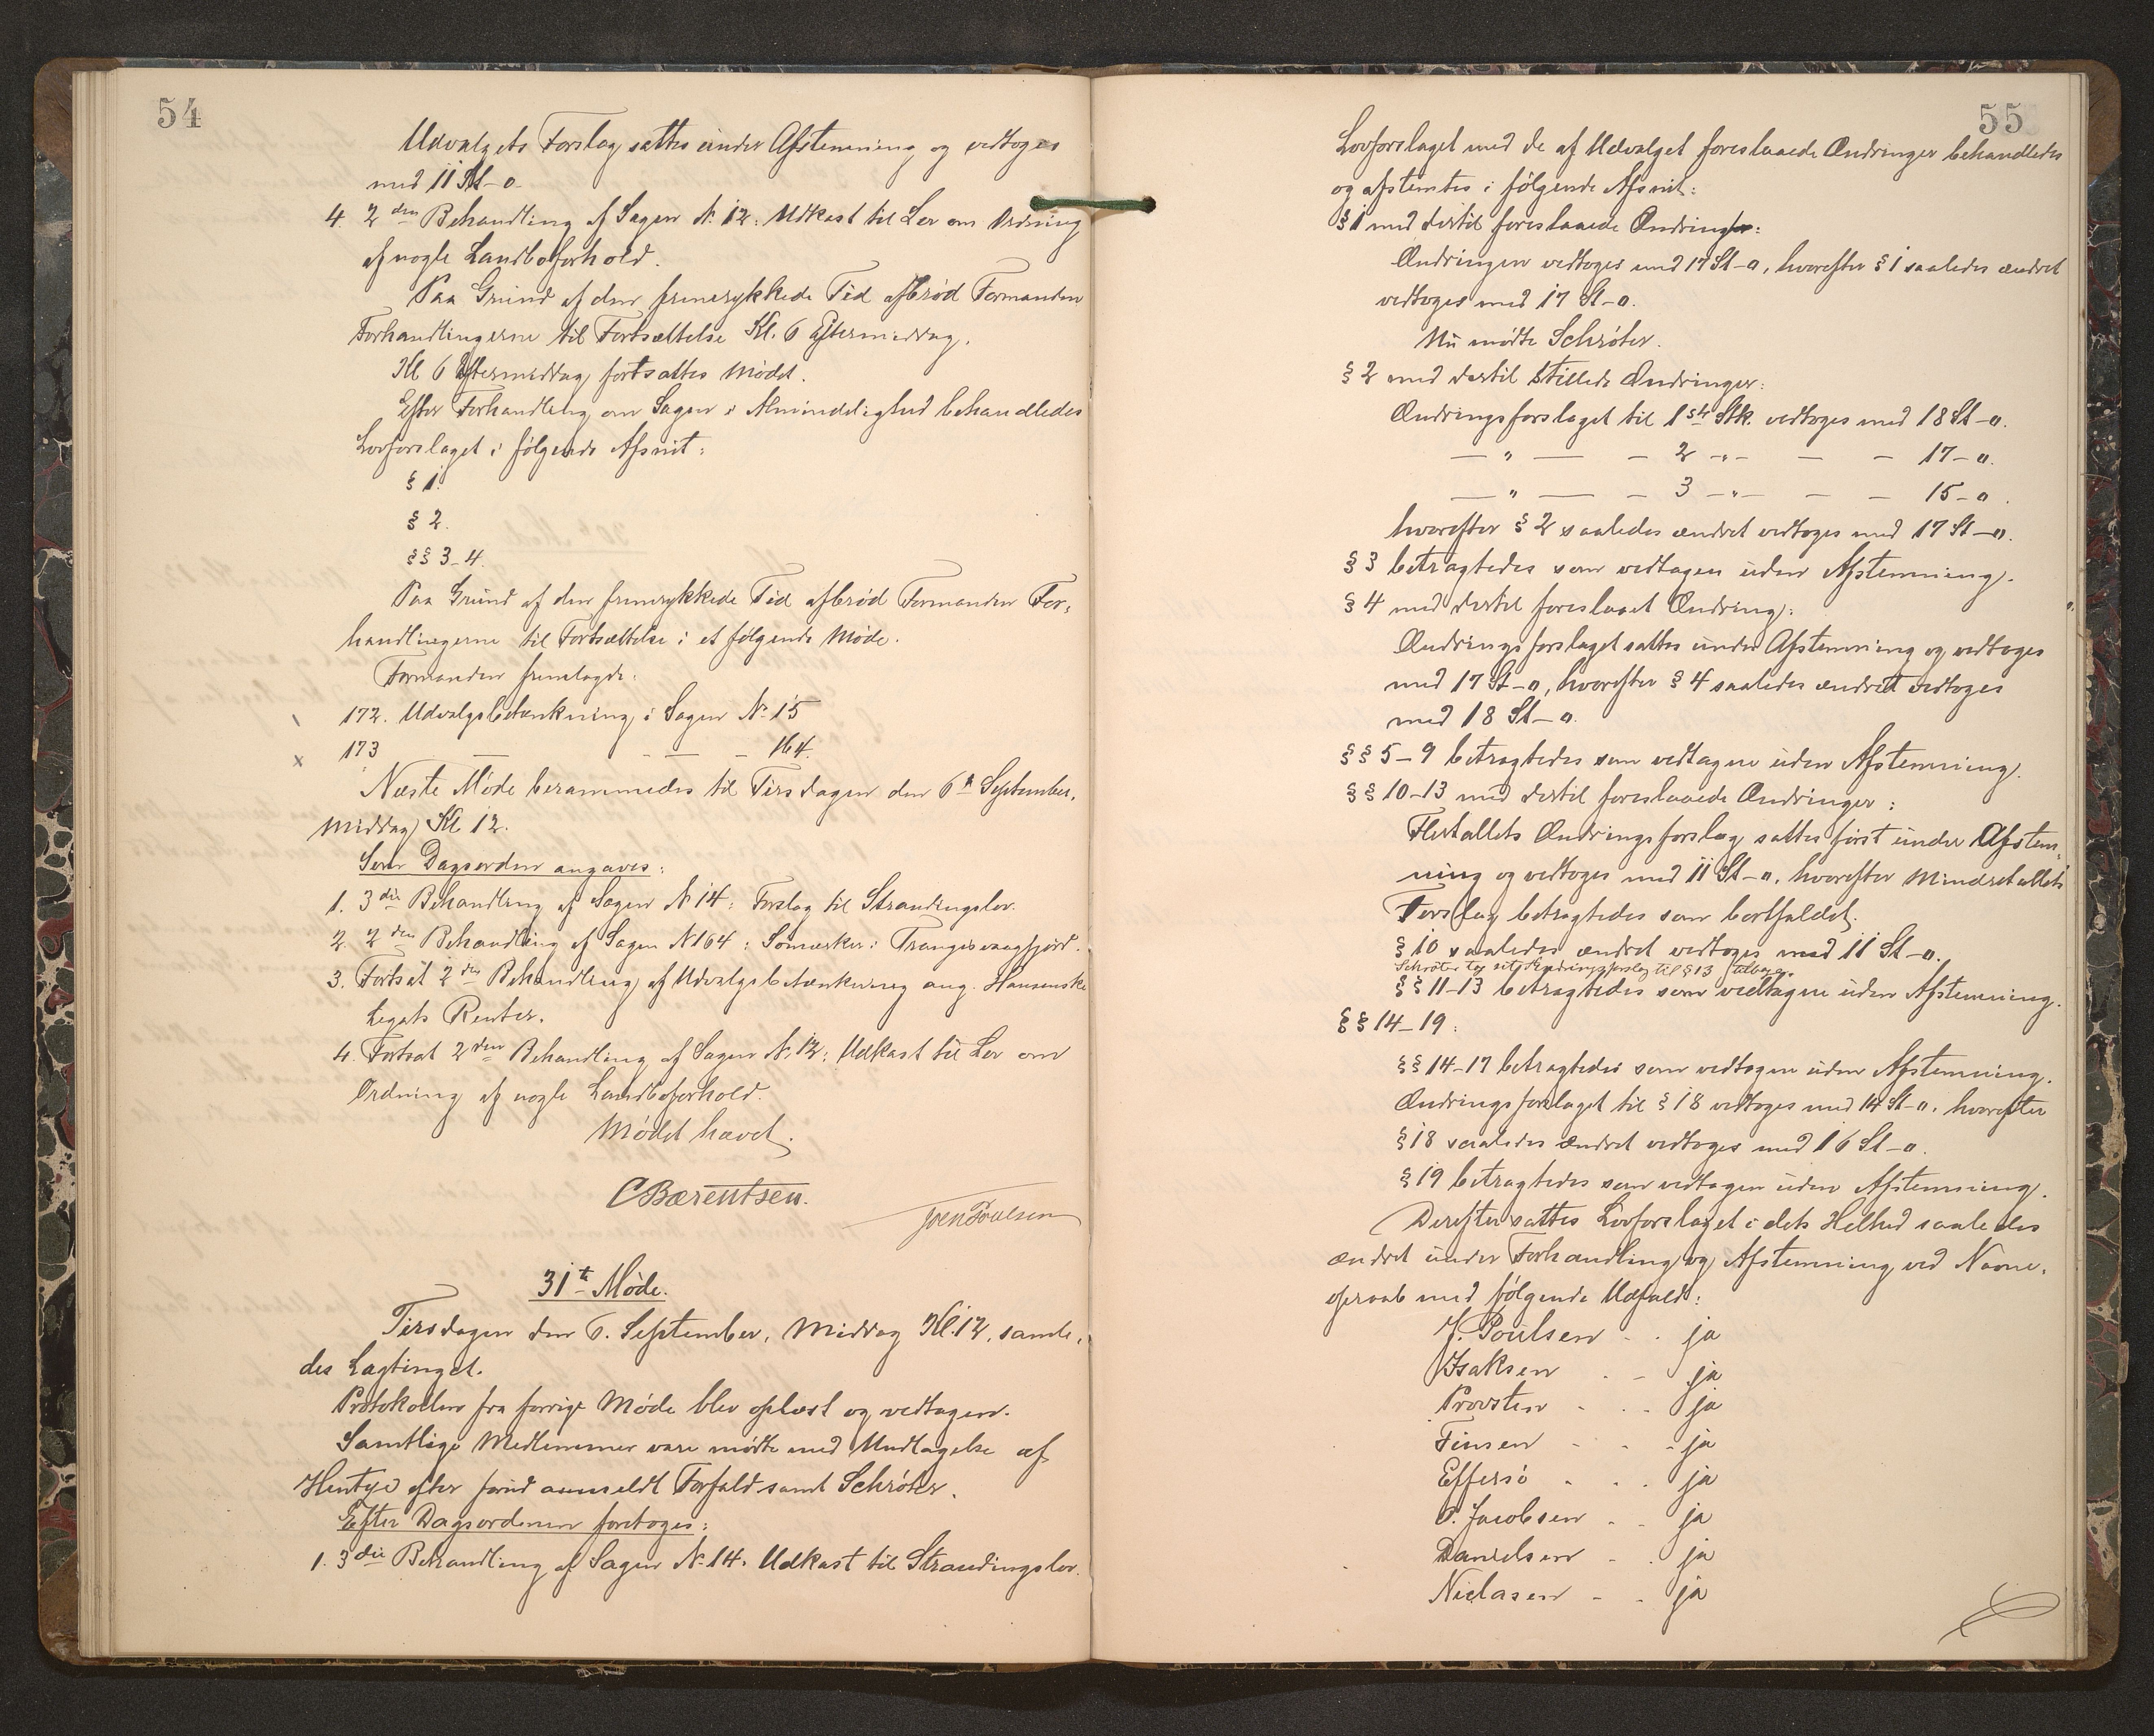 54
Udvalgets Forslag sattes under Afstemning og vedtoges
med 11 St - 0.
4. 2den Behandling af Sagen N. 12: Udkast til Lov om Ordning
af nogle Landboforhold.
Paa Grund af den fremrykkede Tid afbrød Formanden
Forhandlingerne til Fortsættelse Kl. 6 Eftermiddag.
Kl 6 Eftermiddag fortsattes Mødet.
Efter Forhandling om Sagen i Almindelighed behandledes
Lovforslaget i følgende Afsnit:
§ 1.
§ 2.
§§ 3-4.
Paa Grund af den fremrykkede Tid afbrød Formanden For-
handlingerne til Fortsættelse i et følgende Møde.
Formanden fremlagde:
172. Udvalgsbetænkning i Sagen N. 15
x 173 — - — - 164.
Næste Møde berammedes til Tirsdagen den 6te September,
Middag Kl. 12.
Som Dagsorden angaves:
1. 3die Behandling af Sagen N 14: Forslag til Strandingslov.
2. 2den Behandling af Sagen N 164: Sømærker i Trangisvaagfjord.
3. Fortsat 2den Behandling af Udvalgsbetænkning ang. Hansenske
Legats Renter.
4. Fortsat 2den Behandling af Sagen N. 12: Udkast til Lov om
Ordning af nogle Landboforhold.
Mødet hævet.
C Bærentsen.
Joen Poulsen
31te Møde.
Tirsdagen den 6. September, Middag Kl. 12, samle-
des Lagtinget.
Protokollen fra forrige Møde blev oplæst og vedtagen.
Samtlige Medlemmer vare mødte med Undtagelse af
Hentze efter forud anmeldt Forfald samt Schrøter.
Efter Dagsordenen foretoges:
1. 3die Behandling af Sagen N. 14. Udkast til Strandingslov.
55
Lovforslaget med de af Udvalget foreslaaede Ændringer behandledes
og afstemtes i følgende Afsnit:
§ 1 med dertil foreslaaede Ændring:
Ændringen vedtoges med 17 St - 0, hvorefter § 1 saaledes ændret
vedtoges med 17 St - 0.
Nu mødte Schrøter.
§ 2 med dertil stillede Ændringer:
Ændringsforslaget til 1ste Stk. vedtoges med 18 St - 0.
— " — — 2 - " - — — 17 - 0.
— " — — 3 - " - — — 15 - 0.
hvorefter § 2 saaledes ændret vedtoges med 17 St - 0.
§ 3 betragtedes som vedtagen uden Afstemning.
§ 4 med dertil foreslaaet Ændring:
Ændringsforslaget sattes under Afstemning og vedtoges
med 17 St - 0, hvorefter § 4 saaledes ændret vedtoges
med 18 St - 0.
§§ 5-9 betragtedes som vedtagne uden Afstemning.
§§ 10-13 med dertil foreslaaede Ændringer:
Flertallets Ændringsforslag sattes først under Afstem-
ning og vedtoges med 11 St - 0, hvorefter Mindretallets
Forslag betragtedes som bortfaldet.
§ 10 saaledes ændret vedtoges med 11 St - 0.
Schrøter tog sit Ændringsforslag til § 13 tilbage.
§§ 11-13 betragtedes som vedtagne uden Afstemning.
§§ 14-19:
§§ 14-17 betragtedes som vedtagen uden Afstemning.
Ændringsforslaget til § 18 vedtoges med 14 St - 0, hvorefter
§ 18 saaledes ændret vedtoges med 16 St - 0.
§ 19 betragtedes som vedtagen uden Afstemning.
Derefter sattes Lovforslaget i dets Helhed saaledes
ændret under Forhandling og Afstemning ved Navne-
opraab med følgende Udfald:
J. Poulsen - - ja
Isaksen - - ja
Provsten - - - ja
Finsen - - - ja
Effersø - - - ja
O. Jacobsen - - ja
Danielsen - - ja
Niclasen - - ja